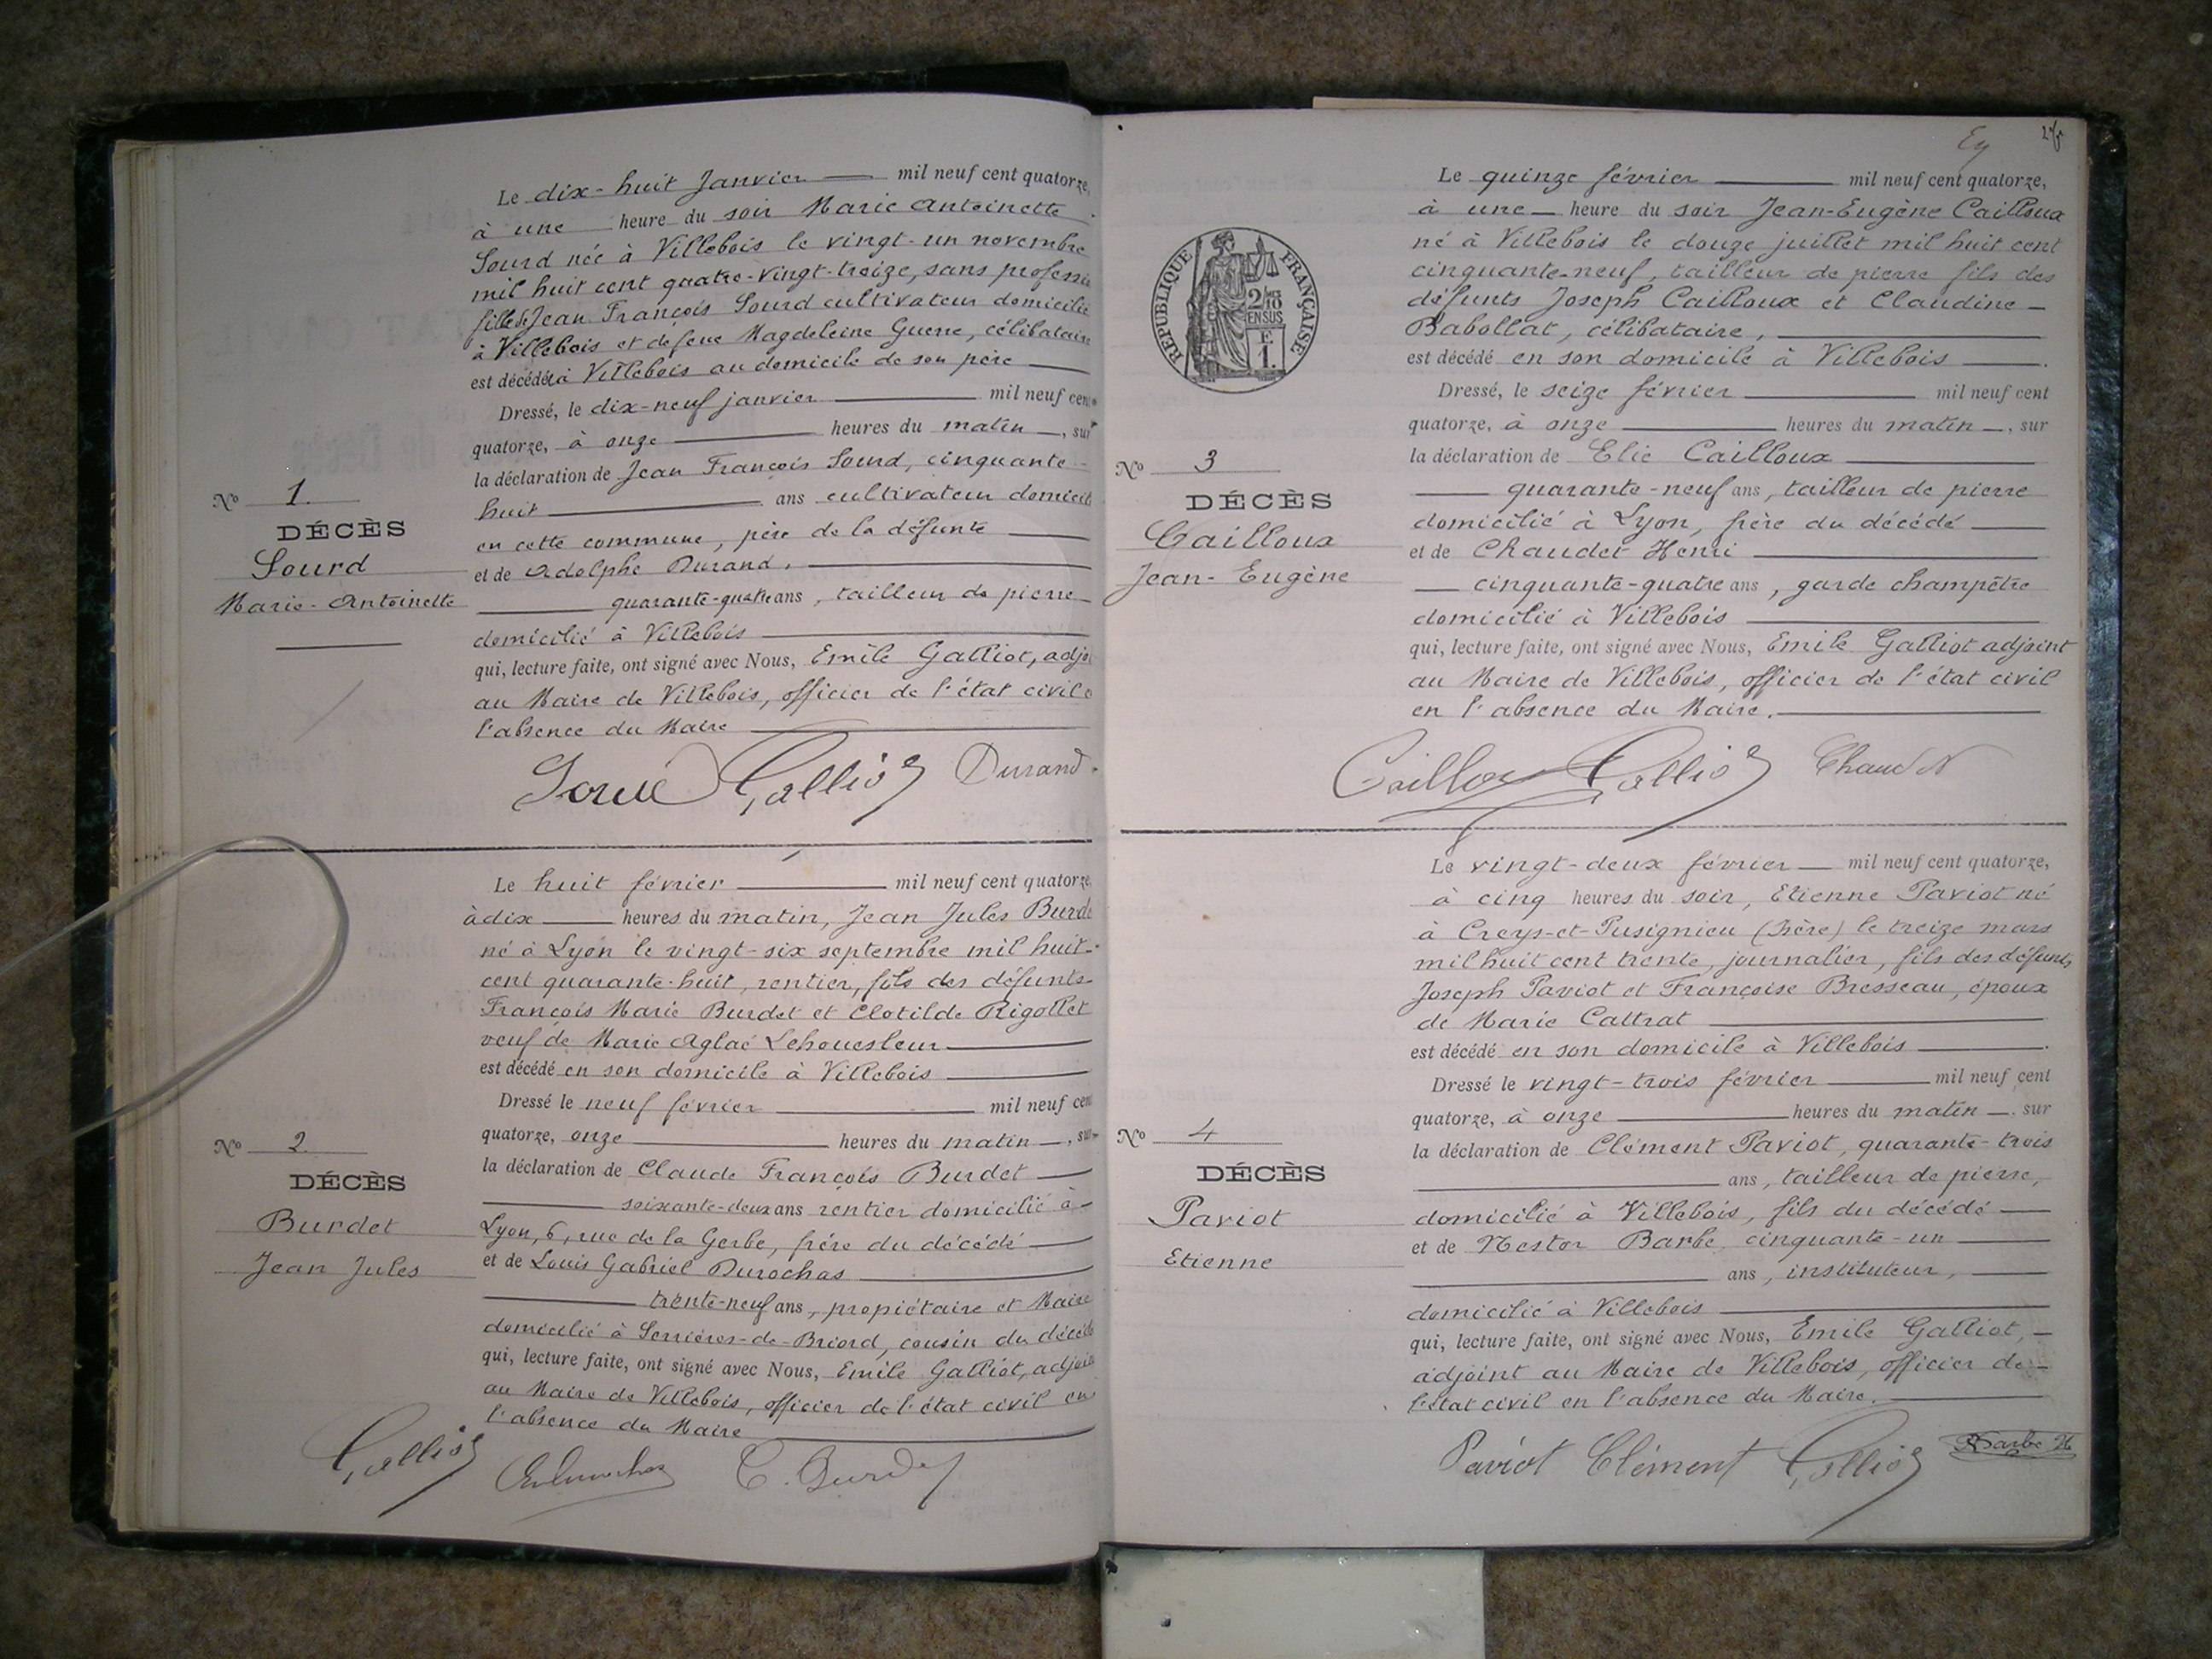 Le dix-huit Janvier mil neuf cent quatorze,
à une heure du soir Marie Antoinette
Sourd née à Villebois le vingt-un novembre
mil huit cent quatre-vingt-treize, sans professi
fille de Jean François Sourd cultivateur domicilié
à Villebois et de feue Magdeleine Guerre, célibataire
est décédée à Villebois au domicile de son père
Dressé, le dix-neuf janvier mil neuf cent
quatorze, à onze heures du matin, sur
la déclaration de Jean François Sourd, cinquante-
huit ans cultivateur domicil
en cette commune, père de la défunte
et de Adolphe Durand.
quarante-quatre ans, tailleur de pierre
domicilié à Villebois
qui, lecture faite, ont signé avec Nous, Emile Galliot, adjoi
au Maire de Villebois, officier de l'état civil e
l'absence du Maire
N° 1.
DÉCÈS
Sourd
Marie-Antoinette
Galliot Durand
Le huit février mil neuf cent quatorze
à dix heures du matin, Jean Jules Burde
né à Lyon le vingt-six septembre mil huit-
cent quarante-huit, rentier, fils des défunts
François Marie Burdet et Clotilde Rigollet
veuf de Marie Aglaé Lehouesleur
est décédé en son domicile à Villebois
Dressé le neuf février mil neuf cent
quatorze, onze heures du matin, sur
la déclaration de Claude François Burdet
soixante-deux ans rentier domicilié à
Lyon, 6, rue de la Gerbe, frère du décédé
et de Louis Gabriel Durochas
trente-neuf ans, propiétaire et Maire
domicilié à Serrières-de-Briord, cousin du décédé
qui, lecture faite, ont signé avec Nous, Emile Galliot, adjoin
au Maire de Villebois, officier de l'état civil en
l'absence du Maire
N° 2.
DÉCÈS
Burdet
Jean Jules
Galliot C. Burdet
Ey
RÉPUBLIQUE FRANÇAISE
2/10 EN SUS
E
1.
Le quinze février mil neuf cent quatorze,
à une heure du soir Jean-Eugène Cailloux
né à Villebois le douze juillet mil huit cent
cinquante-neuf, tailleur de pierre fils des
défunts Joseph Cailloux et Claudine
Babollat, célibataire,
est décédé en son domicile à Villebois
Dressé, le seize février mil neuf cent
quatorze, à onze heures du matin, sur
la déclaration de Elie Cailloux
quarante-neuf ans, tailleur de pierre
domicilié à Lyon, frère du décédé
et de Chaudet Henri
cinquante-quatre ans, garde champêtre
domicilié à Villebois
qui, lecture faite, ont signé avec Nous, Emile Galliot adjoint
au Maire de Villebois, officier de l'état civil
en l'absence du Maire.
N° 3
DÉCÈS
Cailloux
Jean-Eugène
Cailloux Galliot Chaudet
Le vingt-deux février mil neuf cent quatorze,
à cinq heures du soir, Etienne Paviot né
à Creys-et-Pusignieu (Isère) le treize mars
mil huit cent trente, journalier, fils des défunts
Joseph Paviot et Françoise Bresseau, époux
de Marie Cattrat
est décédé en son domicile à Villebois
Dressé le vingt-trois février mil neuf cent
quatorze, à onze heures du matin, sur
la déclaration de Clément Paviot, quarante-trois
ans, tailleur de pierre,
domicilié à Villebois, fils du décédé
et de Nestor Barbe, cinquante-un
ans, instituteur,
domicilié à Villebois
qui, lecture faite, ont signé avec Nous, Emile Galliot,
adjoint au Maire de Villebois, officier de
l'état civil en l'absence du Maire.
N° 4
DÉCÈS
Paviot
Etienne
Paviot Clément Galliot Barbe N